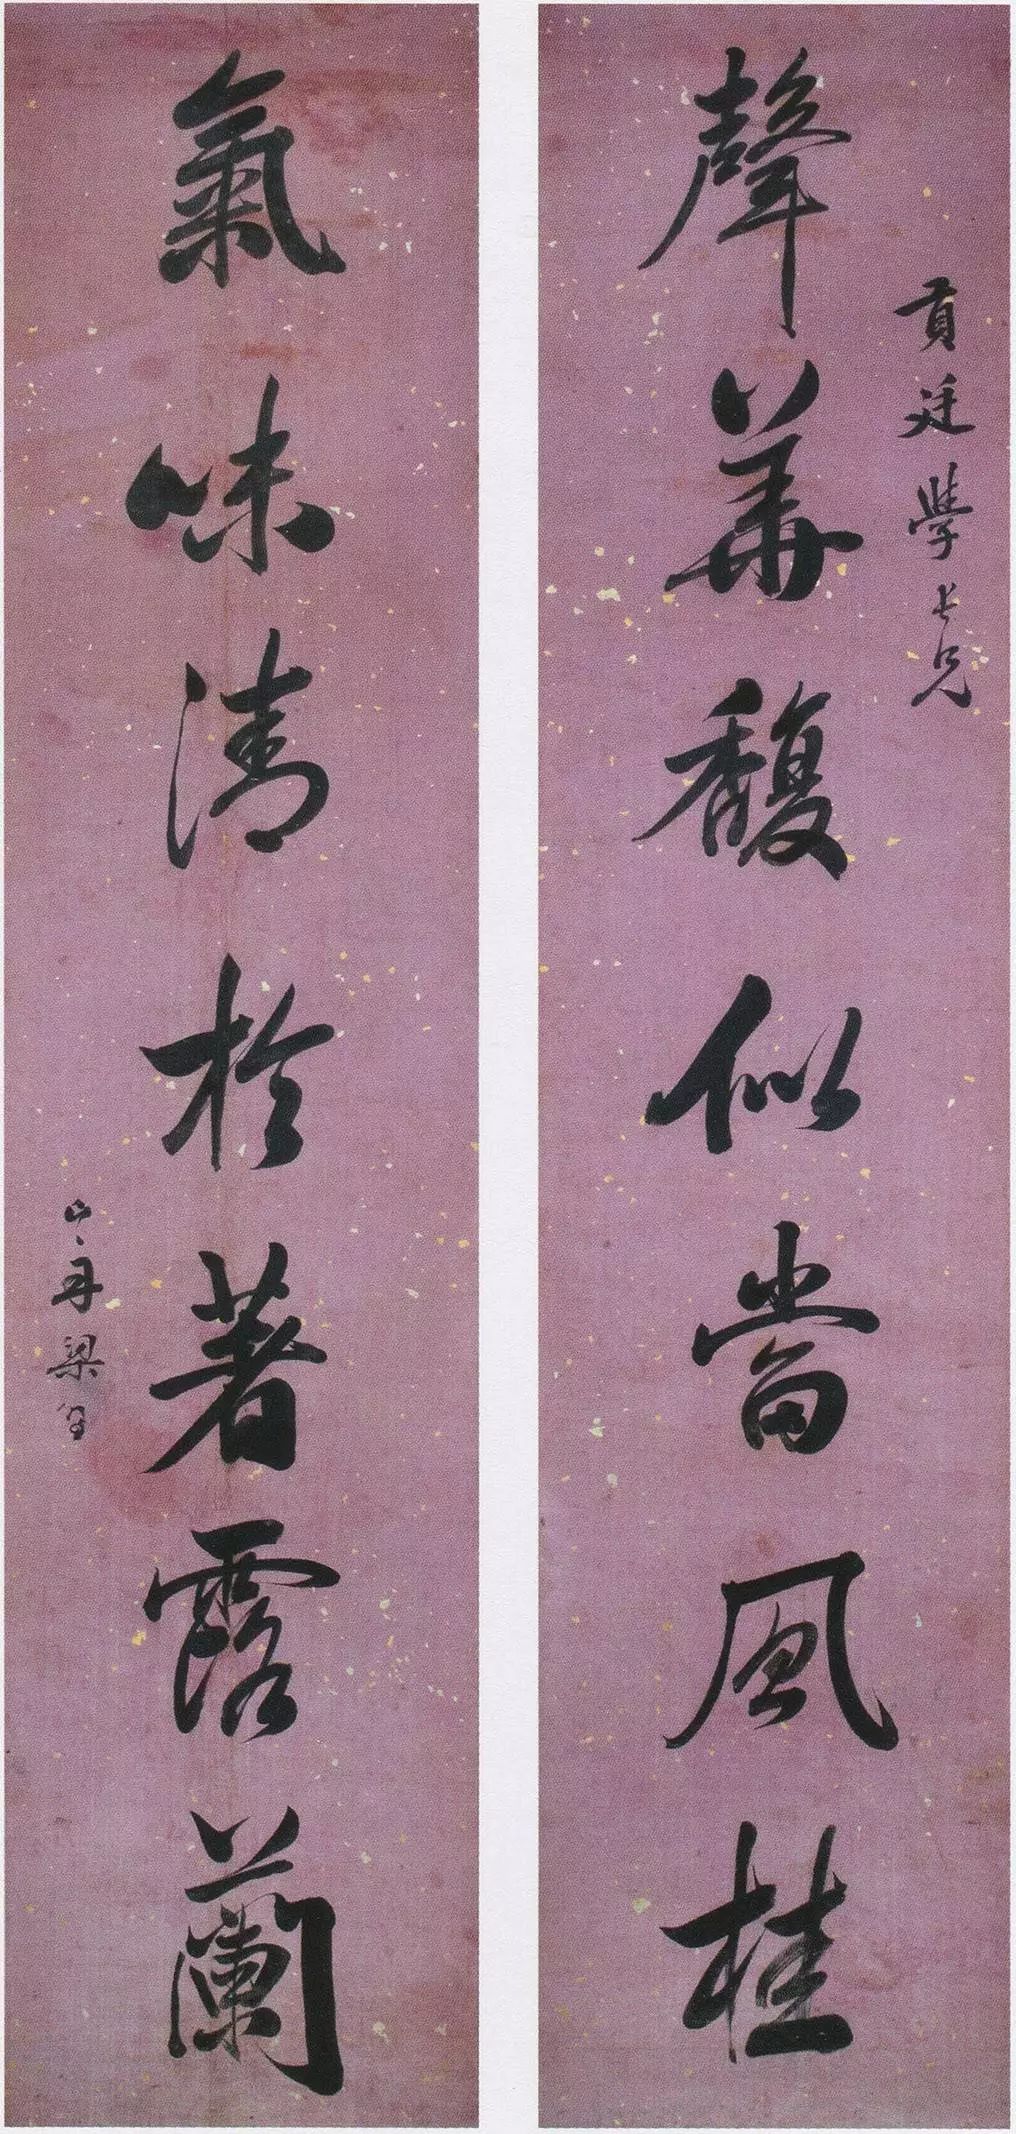 貢廷學長兄
聲華馥似當風桂
氣味清於著露蘭
山舟梁同書